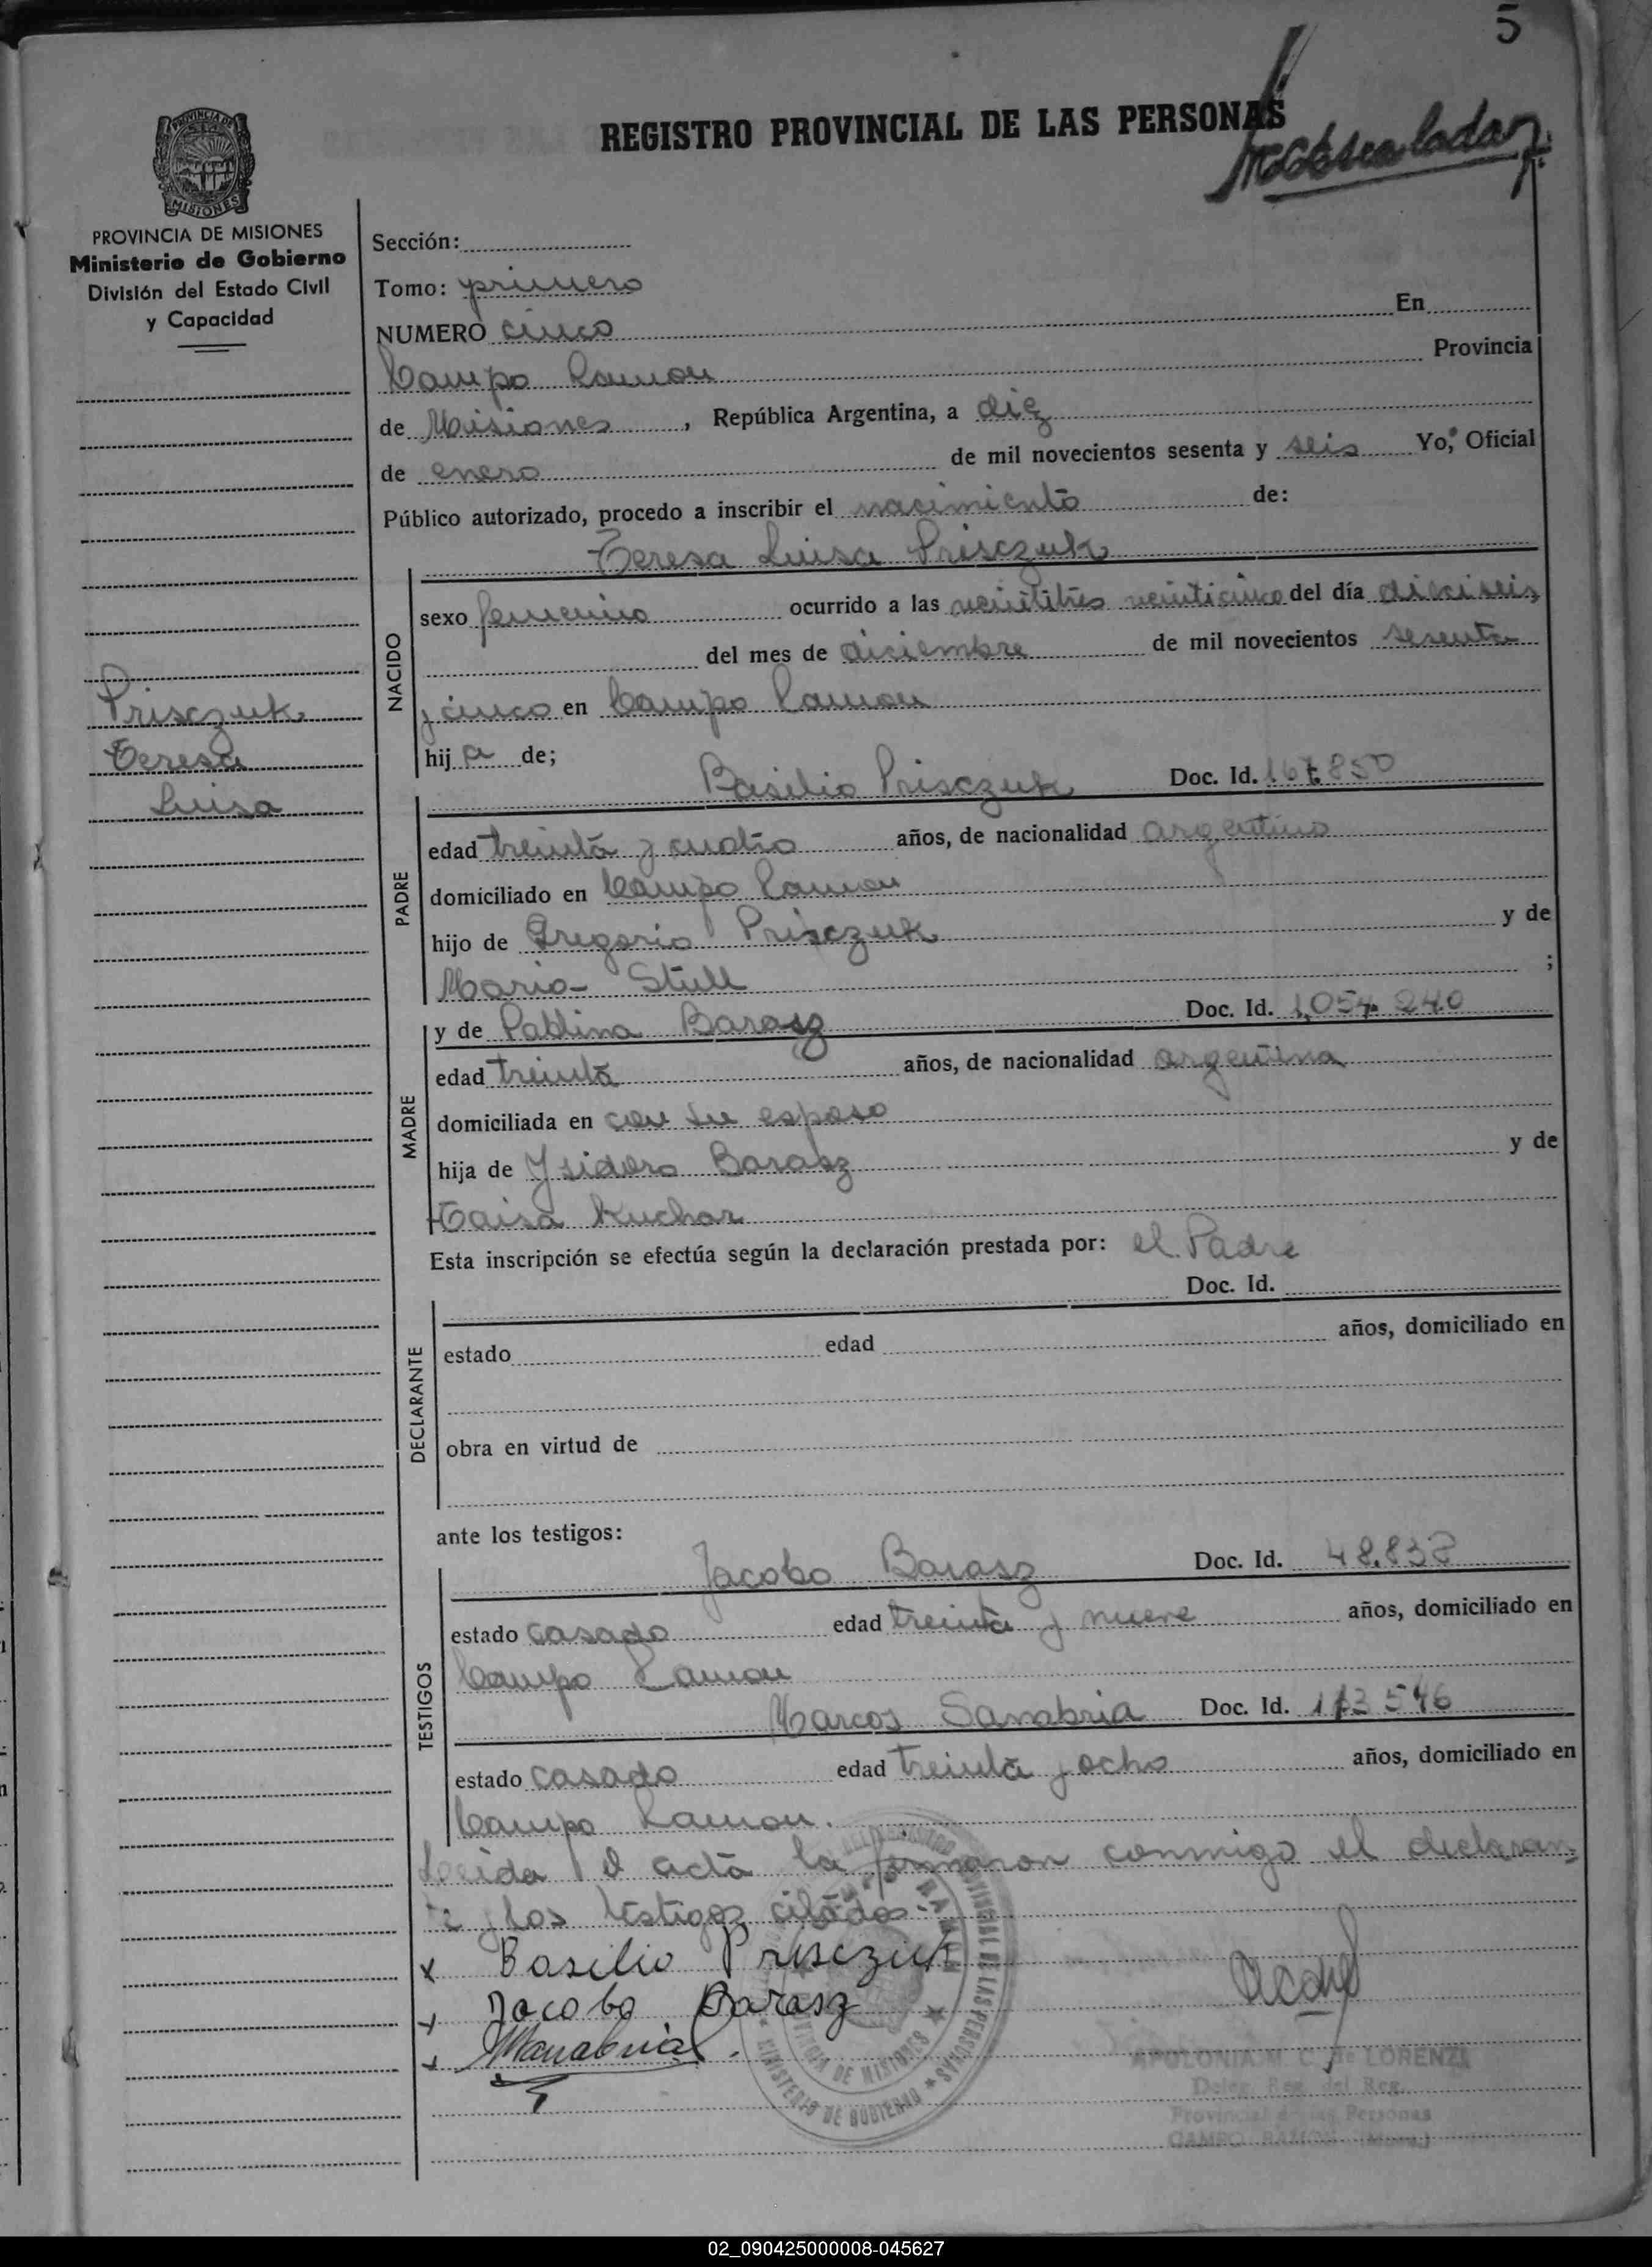 5
REGISTRO PROVINCIAL DE LAS PERSONAS
PROVINCIA DE MISIONES
MISIONES
PROVINCIA DE MISIONES
Ministerio de Gobierno
División del Estado Civil
y Capacidad
Prisczuk
Teresa
Luisa
Sección:
Tomo: primero
NUMERO cinco En
Campo Ramon Provincia
de Misiones, República Argentina, a diez
de enero de mil novecientos sesenta y seis Yo, Oficial
Público autorizado, procedo a inscribir el nacimiento de:
Teresa Luisa Prisczuk
NACIDO
sexo femenino ocurrido a las veintitres veinticinco del día dieciseis
del mes de diciembre de mil novecientos sesenta
y cinco en Campo Ramon
hij a de;
Basilio Prisczuk Doc. Id.
PADRE
edad treinta y cuatro años, de nacionalidad argentino
domiciliado en Campo Ramon
hijo de Gregorio Prisczuk y de
Maria Stull ;
MADRE
y de Pablina Barasz Doc. Id. 1.054.240
edad treinta años, de nacionalidad argentina
domiciliada en con su esposo
hija de Ysidoro Barasz y de
Taisa Kuchar
Esta inscripción se efectúa según la declaración prestada por: el Padre
Doc. Id.
DECLARANTE
estado edad años, domiciliado en
obra en virtud de
ante los testigos:
Jacobo Barasz Doc. Id. 48.838
TESTIGOS
estado casado edad treinta y nueve años, domiciliado en
Campo Ramon
Marcos Sanabria Doc. Id.
estado casado edad treinta y ocho años, domiciliado en
Campo Ramon.
Leida el acta la firmaron conmigo el declaran-
te y los testigos citados.-
x Basilio Prisczuk
x Jacobo Barasz
x
MINISTERIO DE GOBIERNO ★ PROVINCIAL DE LAS PERSONAS ★
PROVINCIA DE MISIONES
APOLONIA M. C. de LORENZI
Deleg. Reg. del Reg.
Provincial de las Personas
CAMPO RAMON (Mnes.)
02_090425000008-045627